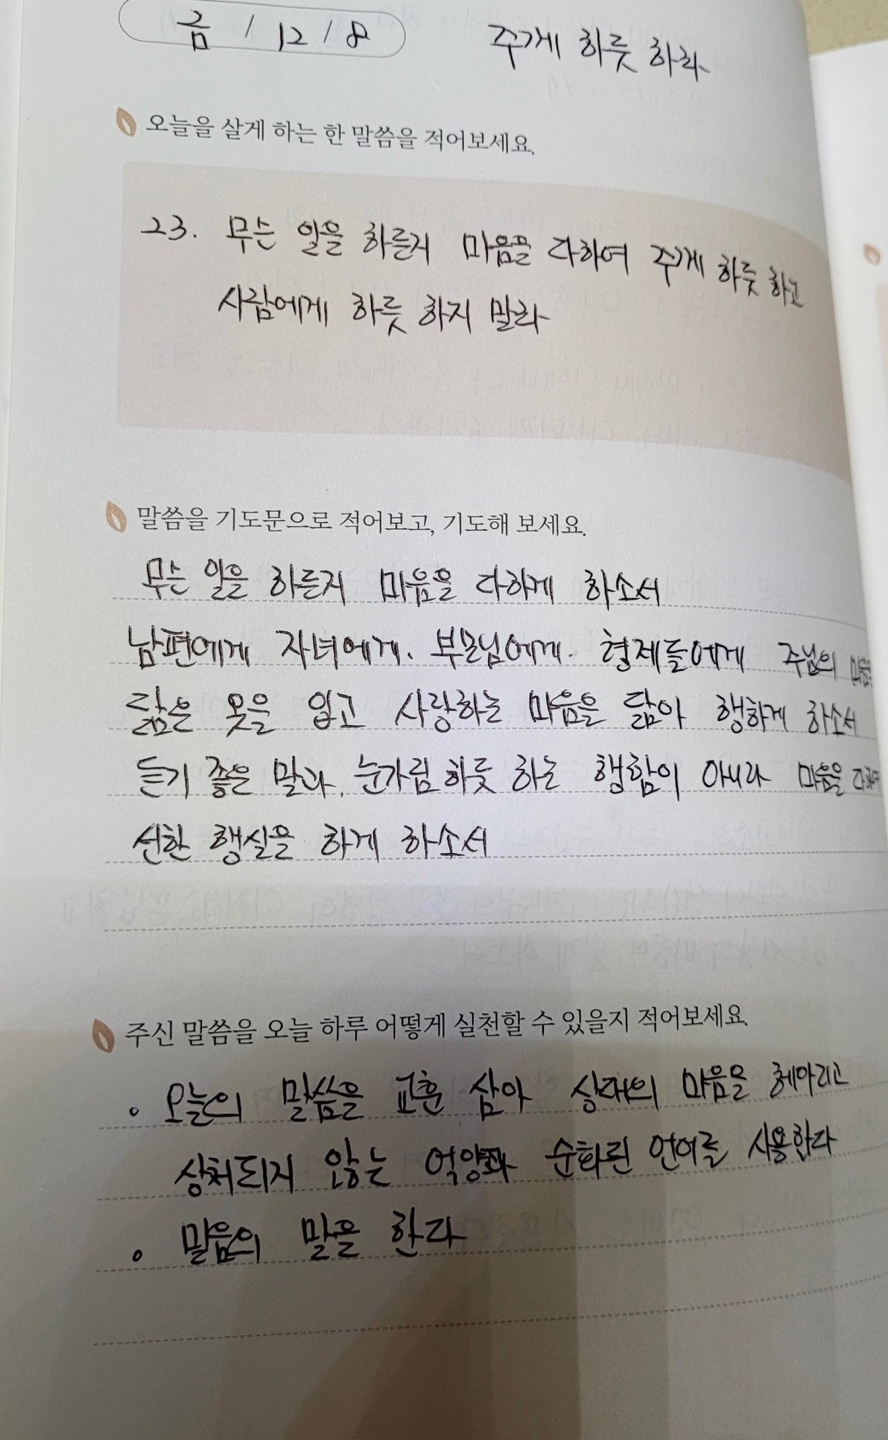 금 / 12 / 8
주께 하듯 하라
오늘을 살게 하는 한 말씀을 적어보세요.
23. 무슨 일을 하든지 마음을 다하여 주께 하듯 하고
사람에게 하듯 하지 말라
말씀을 기도문으로 적어보고, 기도해 보세요.
무슨 일을 하든지 마음을 다하게 하소서
남편에게 자녀에게. 부모님에게. 형제들에게 주님의 마음
닮은 옷을 입고 사랑하는 마음을 닮아 행하게 하소서
듣기 좋은 말과, 눈가림 하듯 하는 행함이 아니라 마음을 다하여
선한 행실을 하게 하소서
주신 말씀을 오늘 하루 어떻게 실천할 수 있을지 적어보세요.
• 오늘의 말씀을 교훈 삼아 상대의 마음을 헤아리고
상처되지 않는 억양과 순화된 언어를 사용한다
• 믿음의 말을 한다